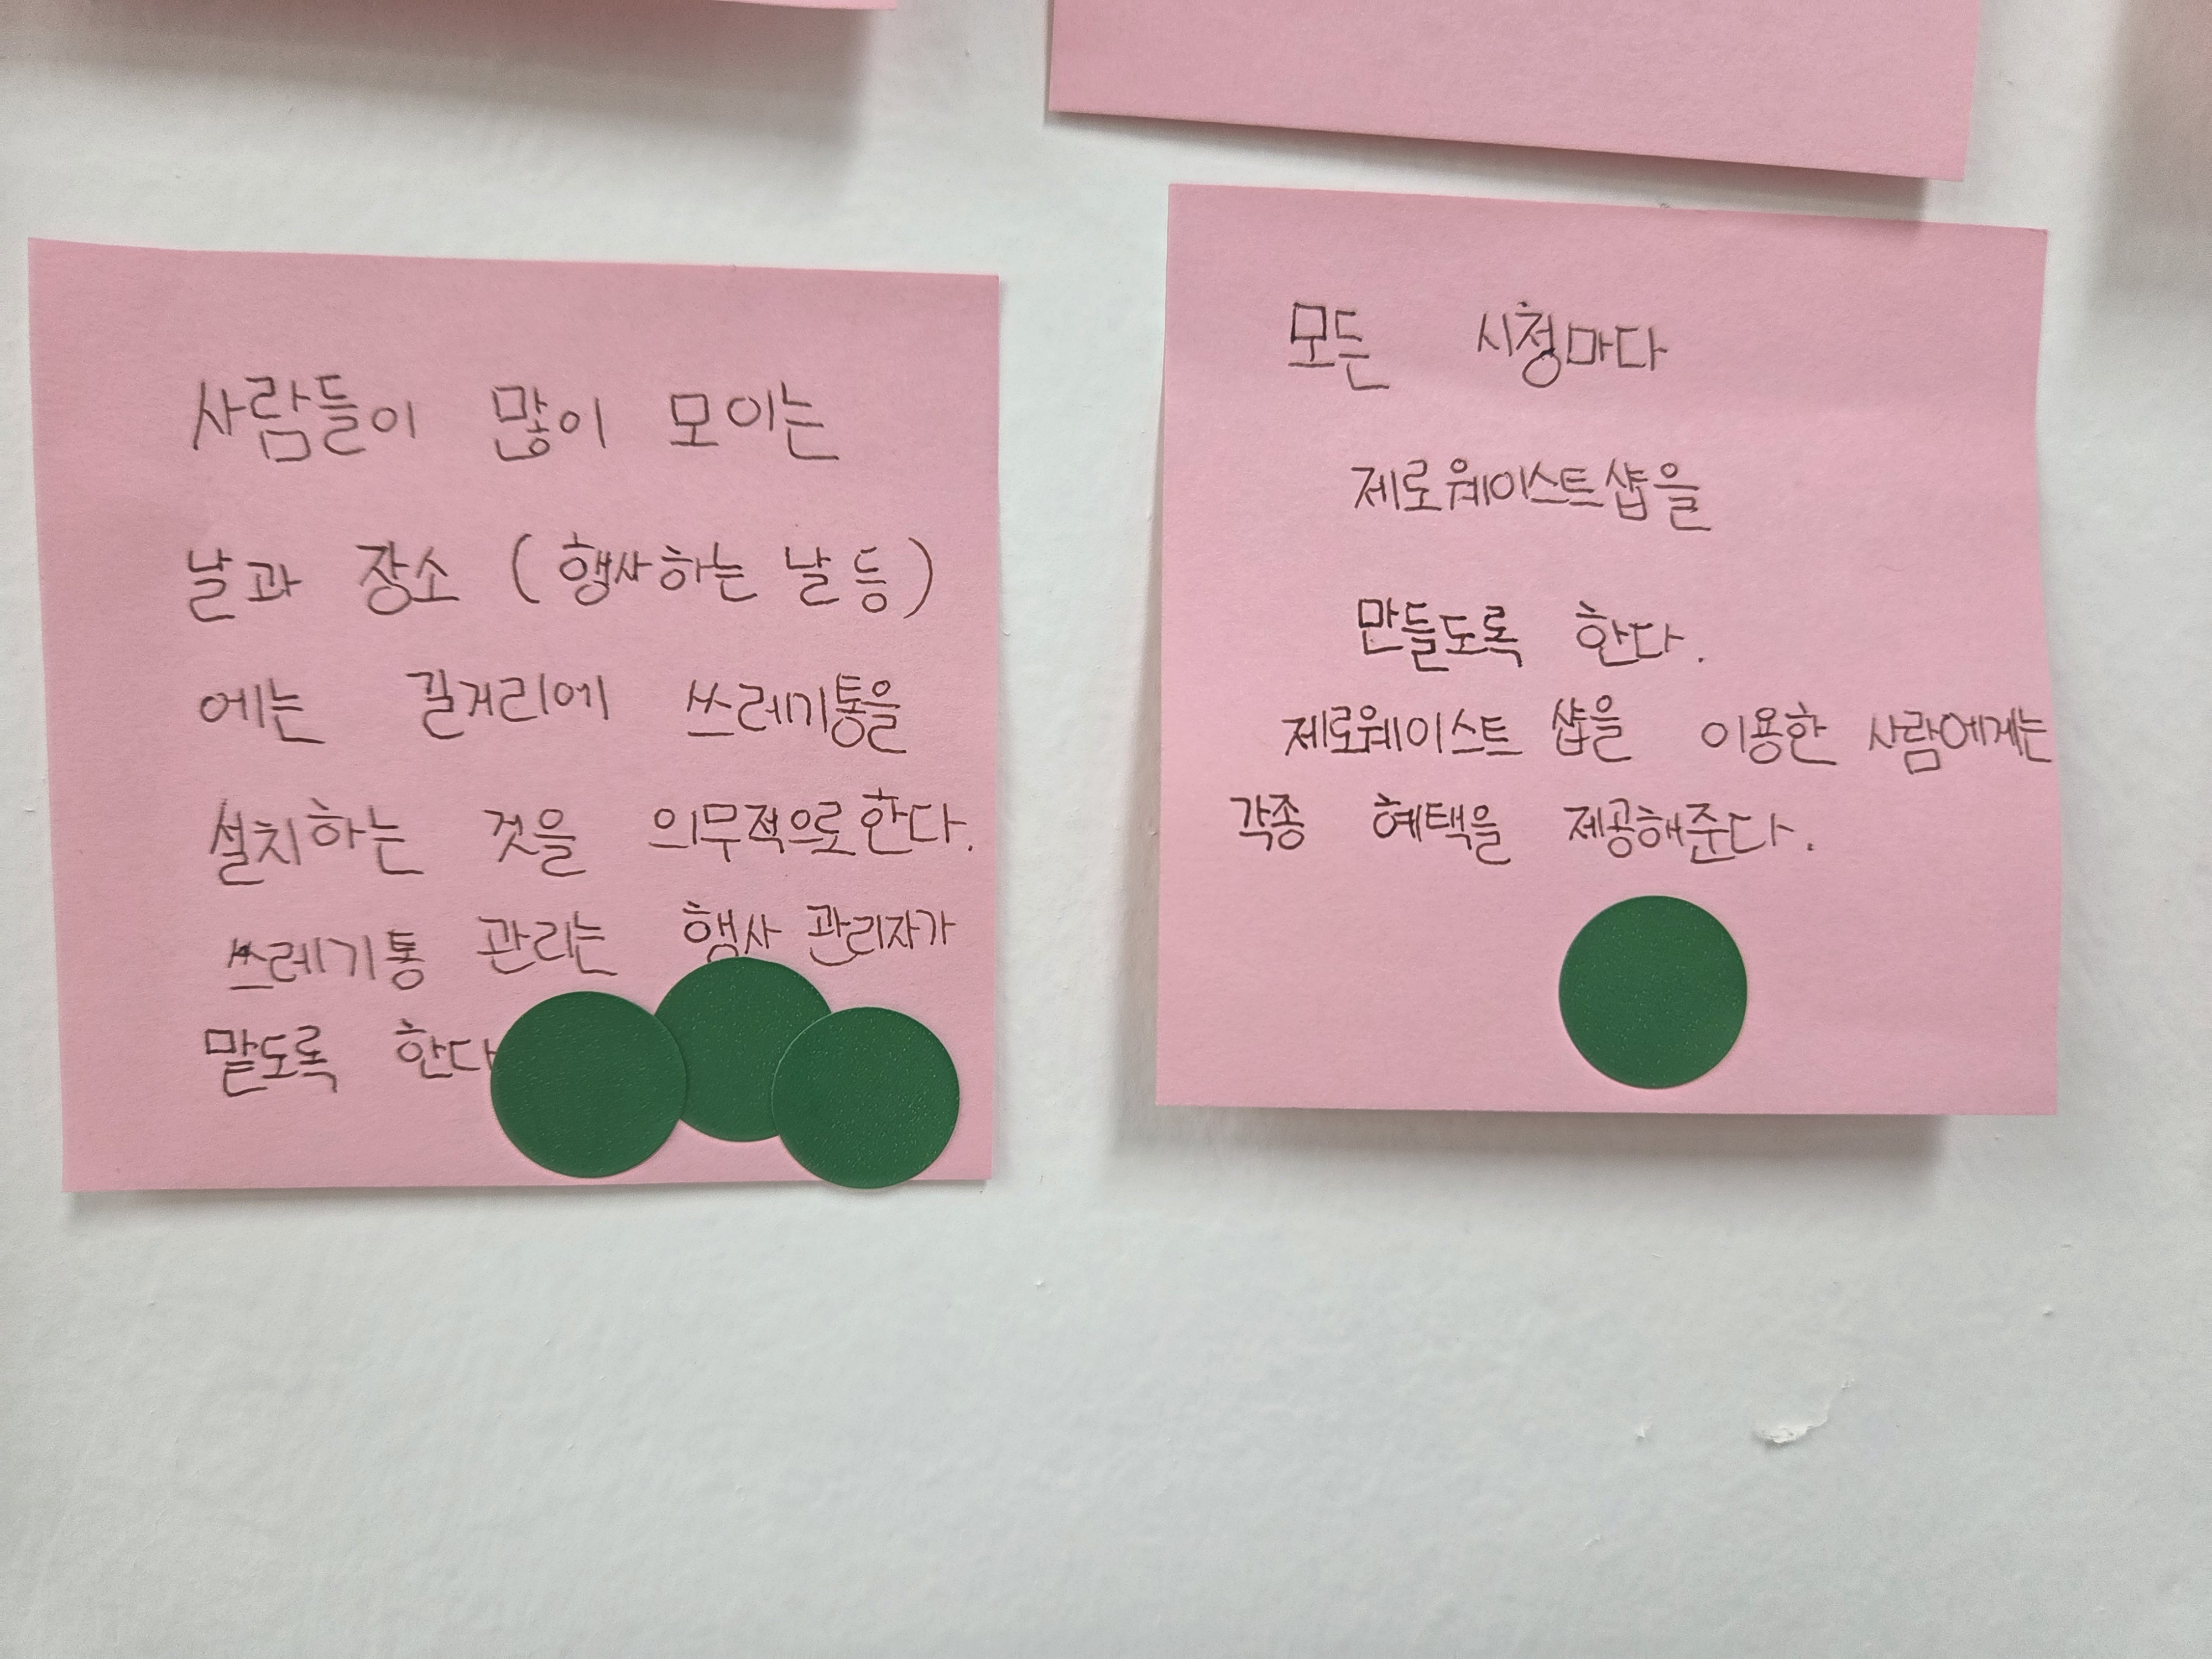 사람들이 많이 모이는
날과 장소 (행사하는 날 등)
에는 길거리에 쓰레기통을
설치하는 것을 의무적으로한다.
쓰레기통 관리는 행사 관리자가
맡도록 한다
모든 시청마다
제로웨이스트샵을
만들도록 한다.
제로웨이스트 샵을 이용한 사람에게는
각종 혜택을 제공해준다.